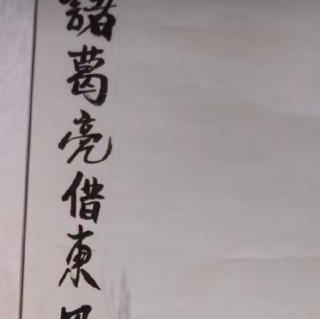 諸葛亮借東